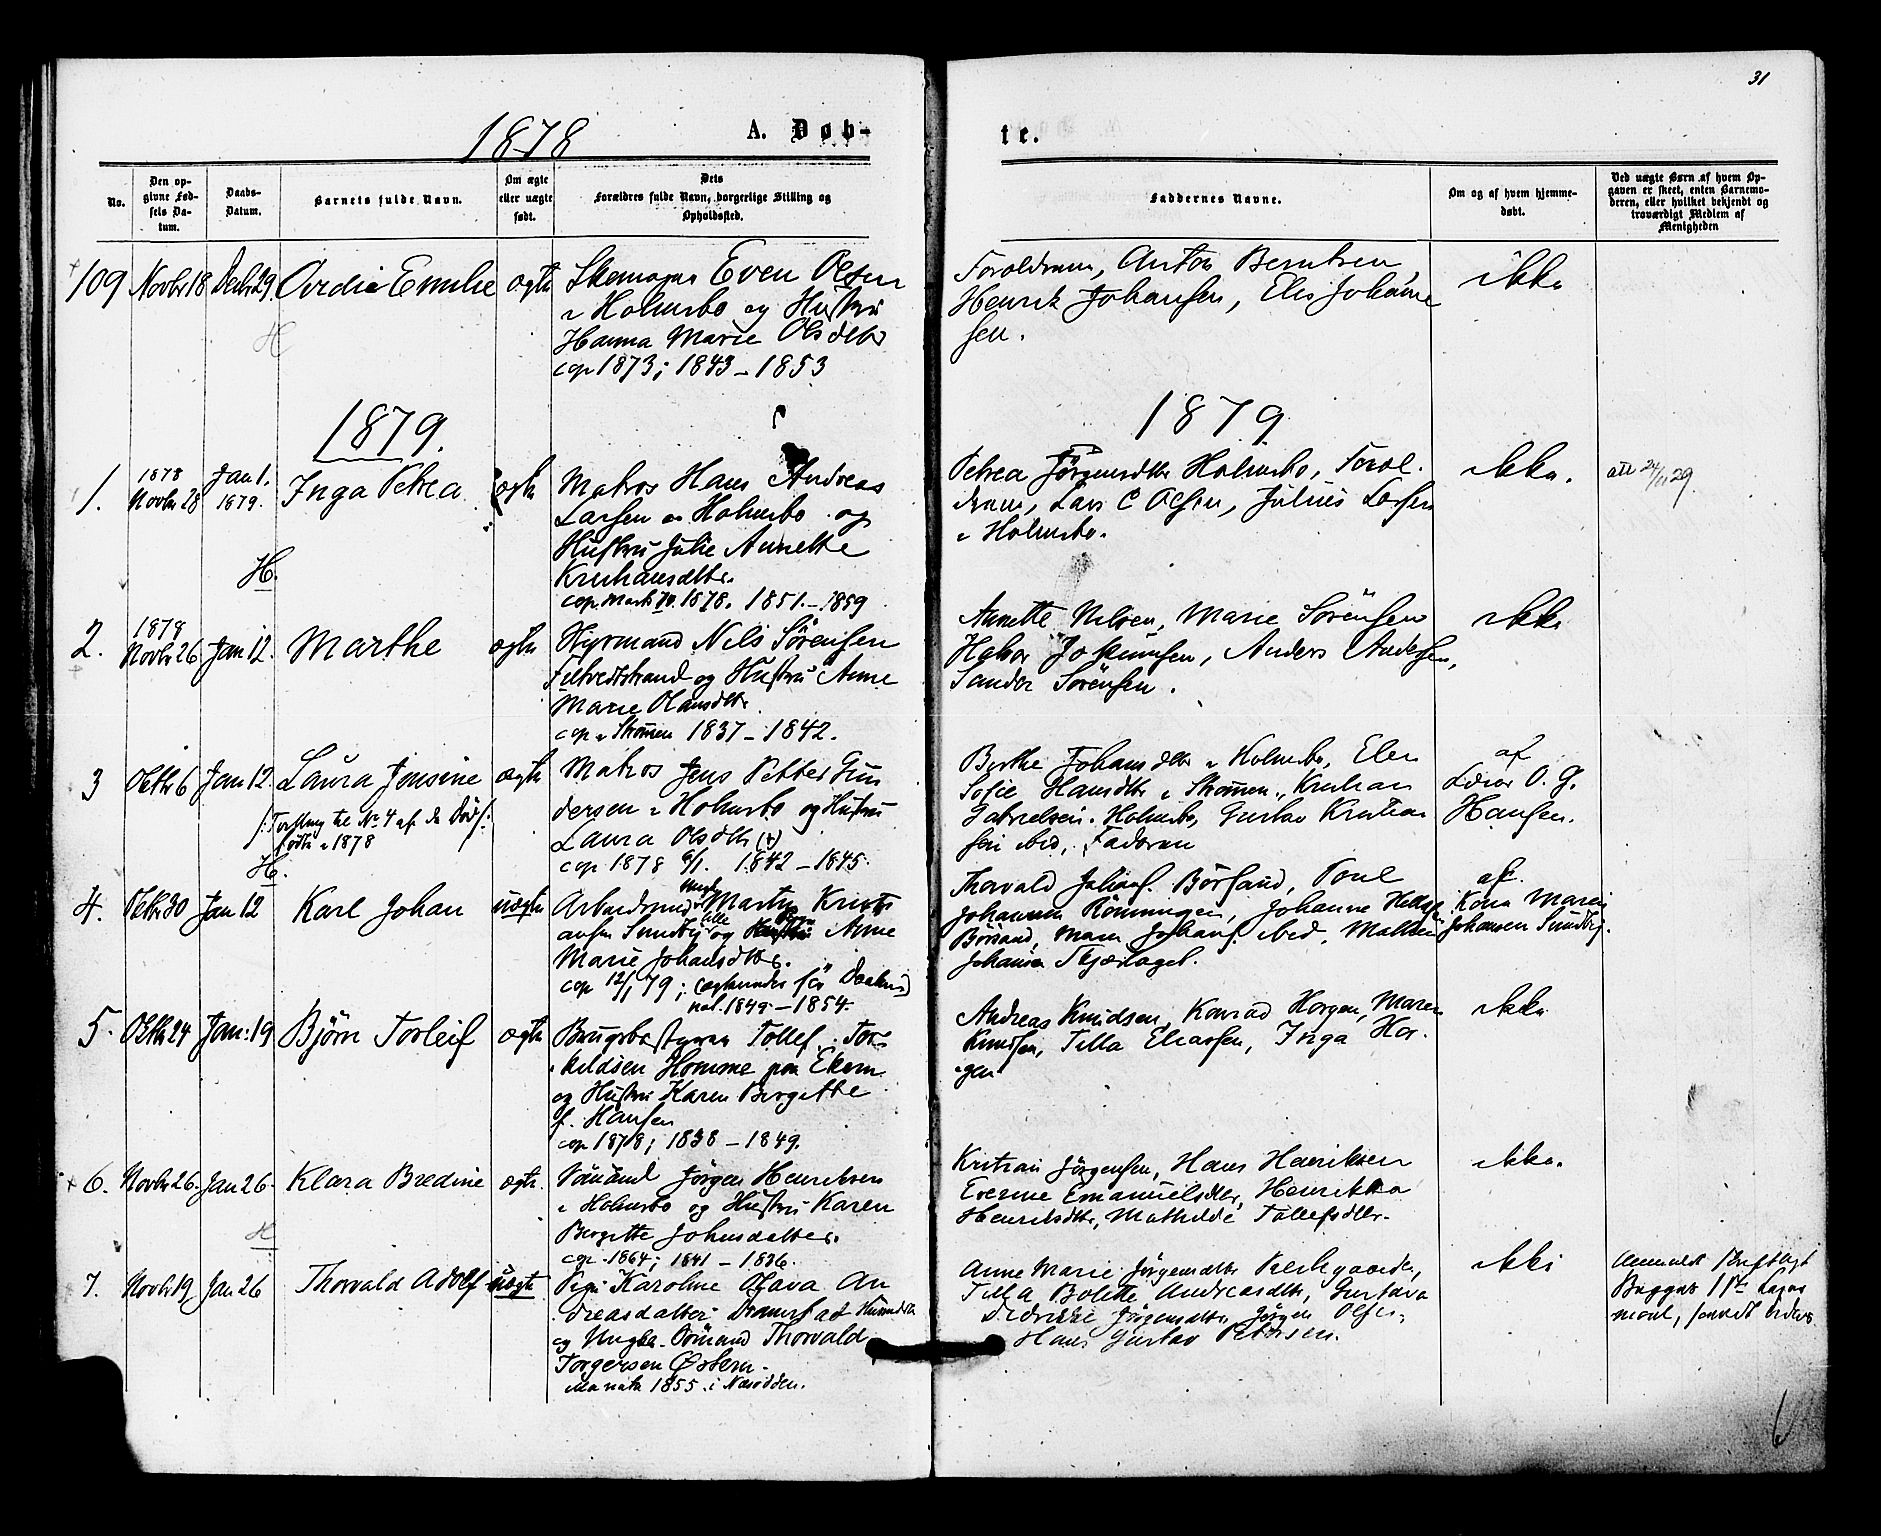 31
1878 A. Døb-
te.
No.
Den op-
givne Fød-
sels Da-
tum.
Daabs-
Datum.
Barnets fulde Navn.
Om ægte
eller uægte
født.
Dets
Forældres fulde Navn, borgerlige Stilling og
Opholdssted.
Faddernes Navne.
Om og af hvem hjemme-
døbt.
Ved uægte Børn af hvem Op-
gaven er skeet, enten Barnemo-
deren, eller hvilket bekjendt og
troværdigt Medlem af
Menigheden
109 Novbr 18 Decbr 29 Emilie ægte
Even Olsen
i Holmsbo og Hustru
Hanna Marie Olsdtr
cop 1873; 1843 – 1853
H
Forældrene, Anton Berntsen,
Henrik Johansen, Elis Johanne
sen.
ikke
1879.
1879
1. 1878
Novbr 28
Jan 1.
1879.
Inga Petrea ægte
Matros Hans Andreas
Larsen i Holmsbo og
Hustru Julie Annette
Kristiansdtr.
cop. 1878. 1851. – 1859
H.
Petrea Jørgensdtr Holmsbo, Foræl.
drene, Lars C Olsen, Julius Larsen
i Holmsbo.
ikke.
att 24/11 29.
2. 1878
Novbr 26 Jan 12. Marthe ægte
Styrmand Nils Sørensen
Filtvedtstrand og Hustru Anne
Marie Olausdtr.
cop i Strømm 1837 – 1842.
Annette Nilsen, Marie Sørensen
Halvor Jokumsen, Anders Andersen,
Sander Sørensen.
ikke
3 Octbr 6 Jan 12. Laura Jensine ægte
/: Tvilling til No 4 af de Død-
fødte i 1878
H.
Matros Jens Petter Gun
dersen i Holmsbo og Hustru
Laura Olsdtr (†)
cop 1878 6/1. 1842 – 1845.
Berthe Johansdtr i Holmsbo, Elen
Sofie Hansdtr i Strømm, Kristian
Gabrielsen i Holmsbo, Gustav Kristian
sen ibid, Faderen
af
Lærer O. G.
Hansen.
4. Octbr 30 Jan 12 Karl Johan uægte
Martin Kristi
ansen Sundby og Anne
Marie Johansdtr.
cop 12/1 79;
1849 – 1854.
Thorvald Johans. Børsand, Poul
Johannesen Rønningen, Johanne
Børsand, Maren Johans. ibid,
Johansen
af.
Maren
Johansen Sundby.
5. Octbr 24 Jan: 19 Bjørn Torleif ægte
Brugsbestyrer Tollef Tor-
kildsen Homme paa Ekern
og Hustru Karen Birgitte
f. Hansen
cop 1878; 1838 – 1849.
Andreas Knudsen, Konrad Horgen, Maren
Knudsen, Tilla Eliassen, Inga Hor-
gen
ikke
6. Novbr 26. Jan 26. Klara Bredine ægte.
H
Sømand Jørgen Henriksen
i Holmsbo og Hustru Karen
Birgitte Johnsdatter.
cop. 1864; 1841 – 1836.
Kristian Jørgensen, Hans Henriksen
Everine Emanuelsdtr, Henrikka
Henriksdtr, Mathilde Tollefsdtr.
ikke.
7. Novbr 19 Jan 26 Thorvald Adolf uægte
Pige Karoline Olava An
dreasdatter
og Ungk. Sømand Thorvald
Torgersen Østern.
1855. i Næsodden.
Anne Marie Jørgensdtr
Tilla Bolette Andreasdtr, Gustava
Didrikke Jørgensdtr, Jørgen Olsen,
Hans Gustav Petersen.
ikke
6